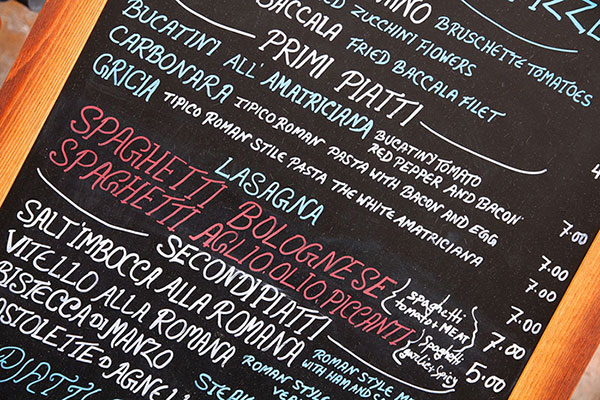 BRUSCHETTE TOMATOES
FRIED ZUCCHINI FLOWERS
BACCALA FRIED BACCALA FILET
PRIMI PIATTI
BUCATINI ALL'AMATRICIANA BUCATINI TOMATO
RED PEPPER AND BACON 7.00
CARBONARA TIPICO ROMAN PASTA WITH BACON AND EGG 7.00
GRICIA TIPICO ROMAN STILE PASTA THE WHITE AMATRICIANA 7.00
LASAGNA 7.00
SPAGHETTI BOLOGNESE (spaghetti tomato & MEAT) 7.00
SPAGHETTI AGLIO, OLIO, PICCANTI (Spaghetti garlic & spicy) 5.00
SECONDI PIATTI
SALT'IMBOCCA ALLA ROMANA ROMAN STYLE
WITH HAM AND
VITELLO ALLA ROMANA ROMAN STYLE
BISTECCA DI MANZO